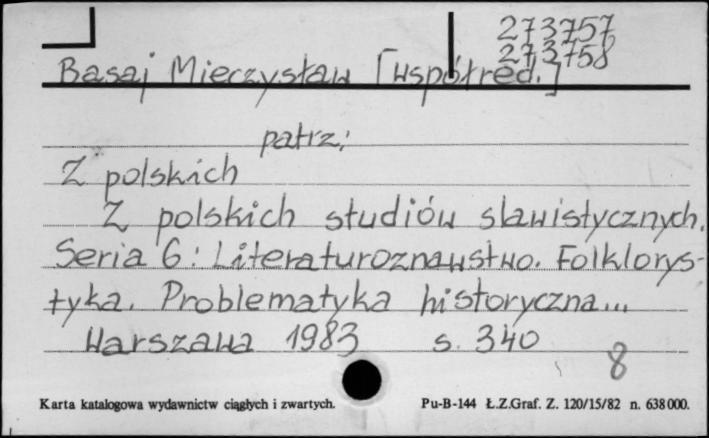 273757
273758
Basaj Mieczysław [współred.]
patrz:
Z polskich
Z polskich studiów slawistycznych.
Seria 6: Literaturoznawstwo. Folklorys-
tyka. Problematyka historyczna...
Warszawa 1983 s. 340
8
Karta katalogowa wydawnictw ciągłych i zwartych. Pu-B-144 Ł.Z.Graf. Z. 120/15/82 n. 638000.